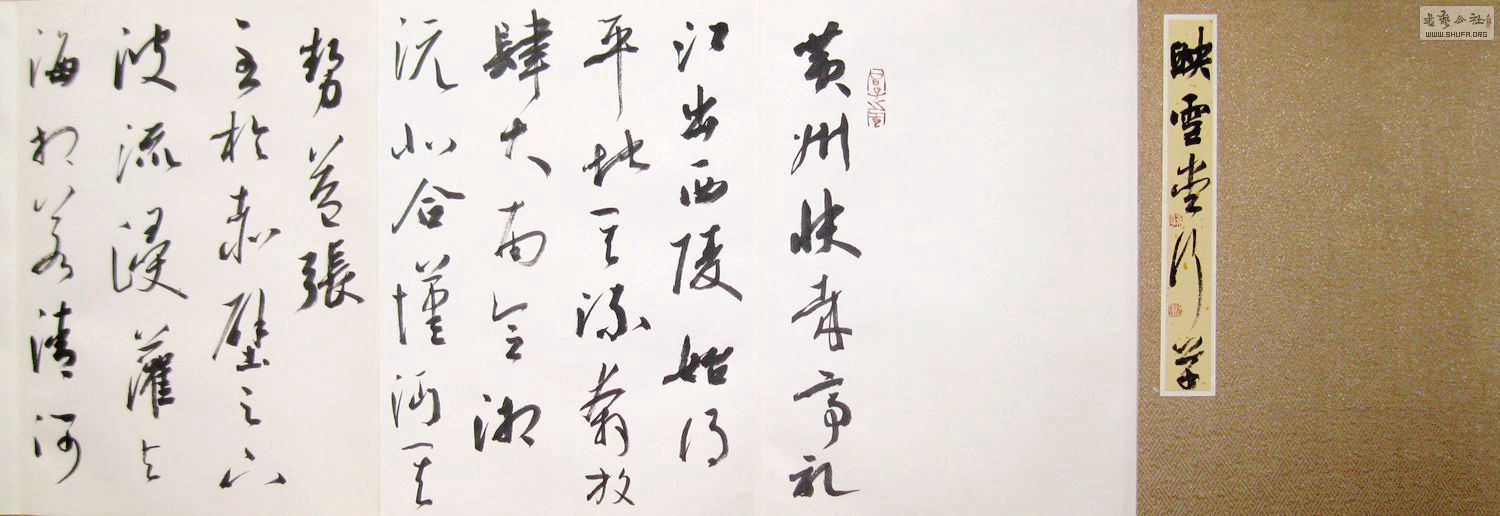 書藝公社
WWW.SHUFA.ORG
映雪堂行草
黄州快哉亭记
江出西陵始得
平地其流奔放
肆大南合湘
沅北合漢沔其
勢益張
至於赤壁之下
波流浸灌与
海相若清河